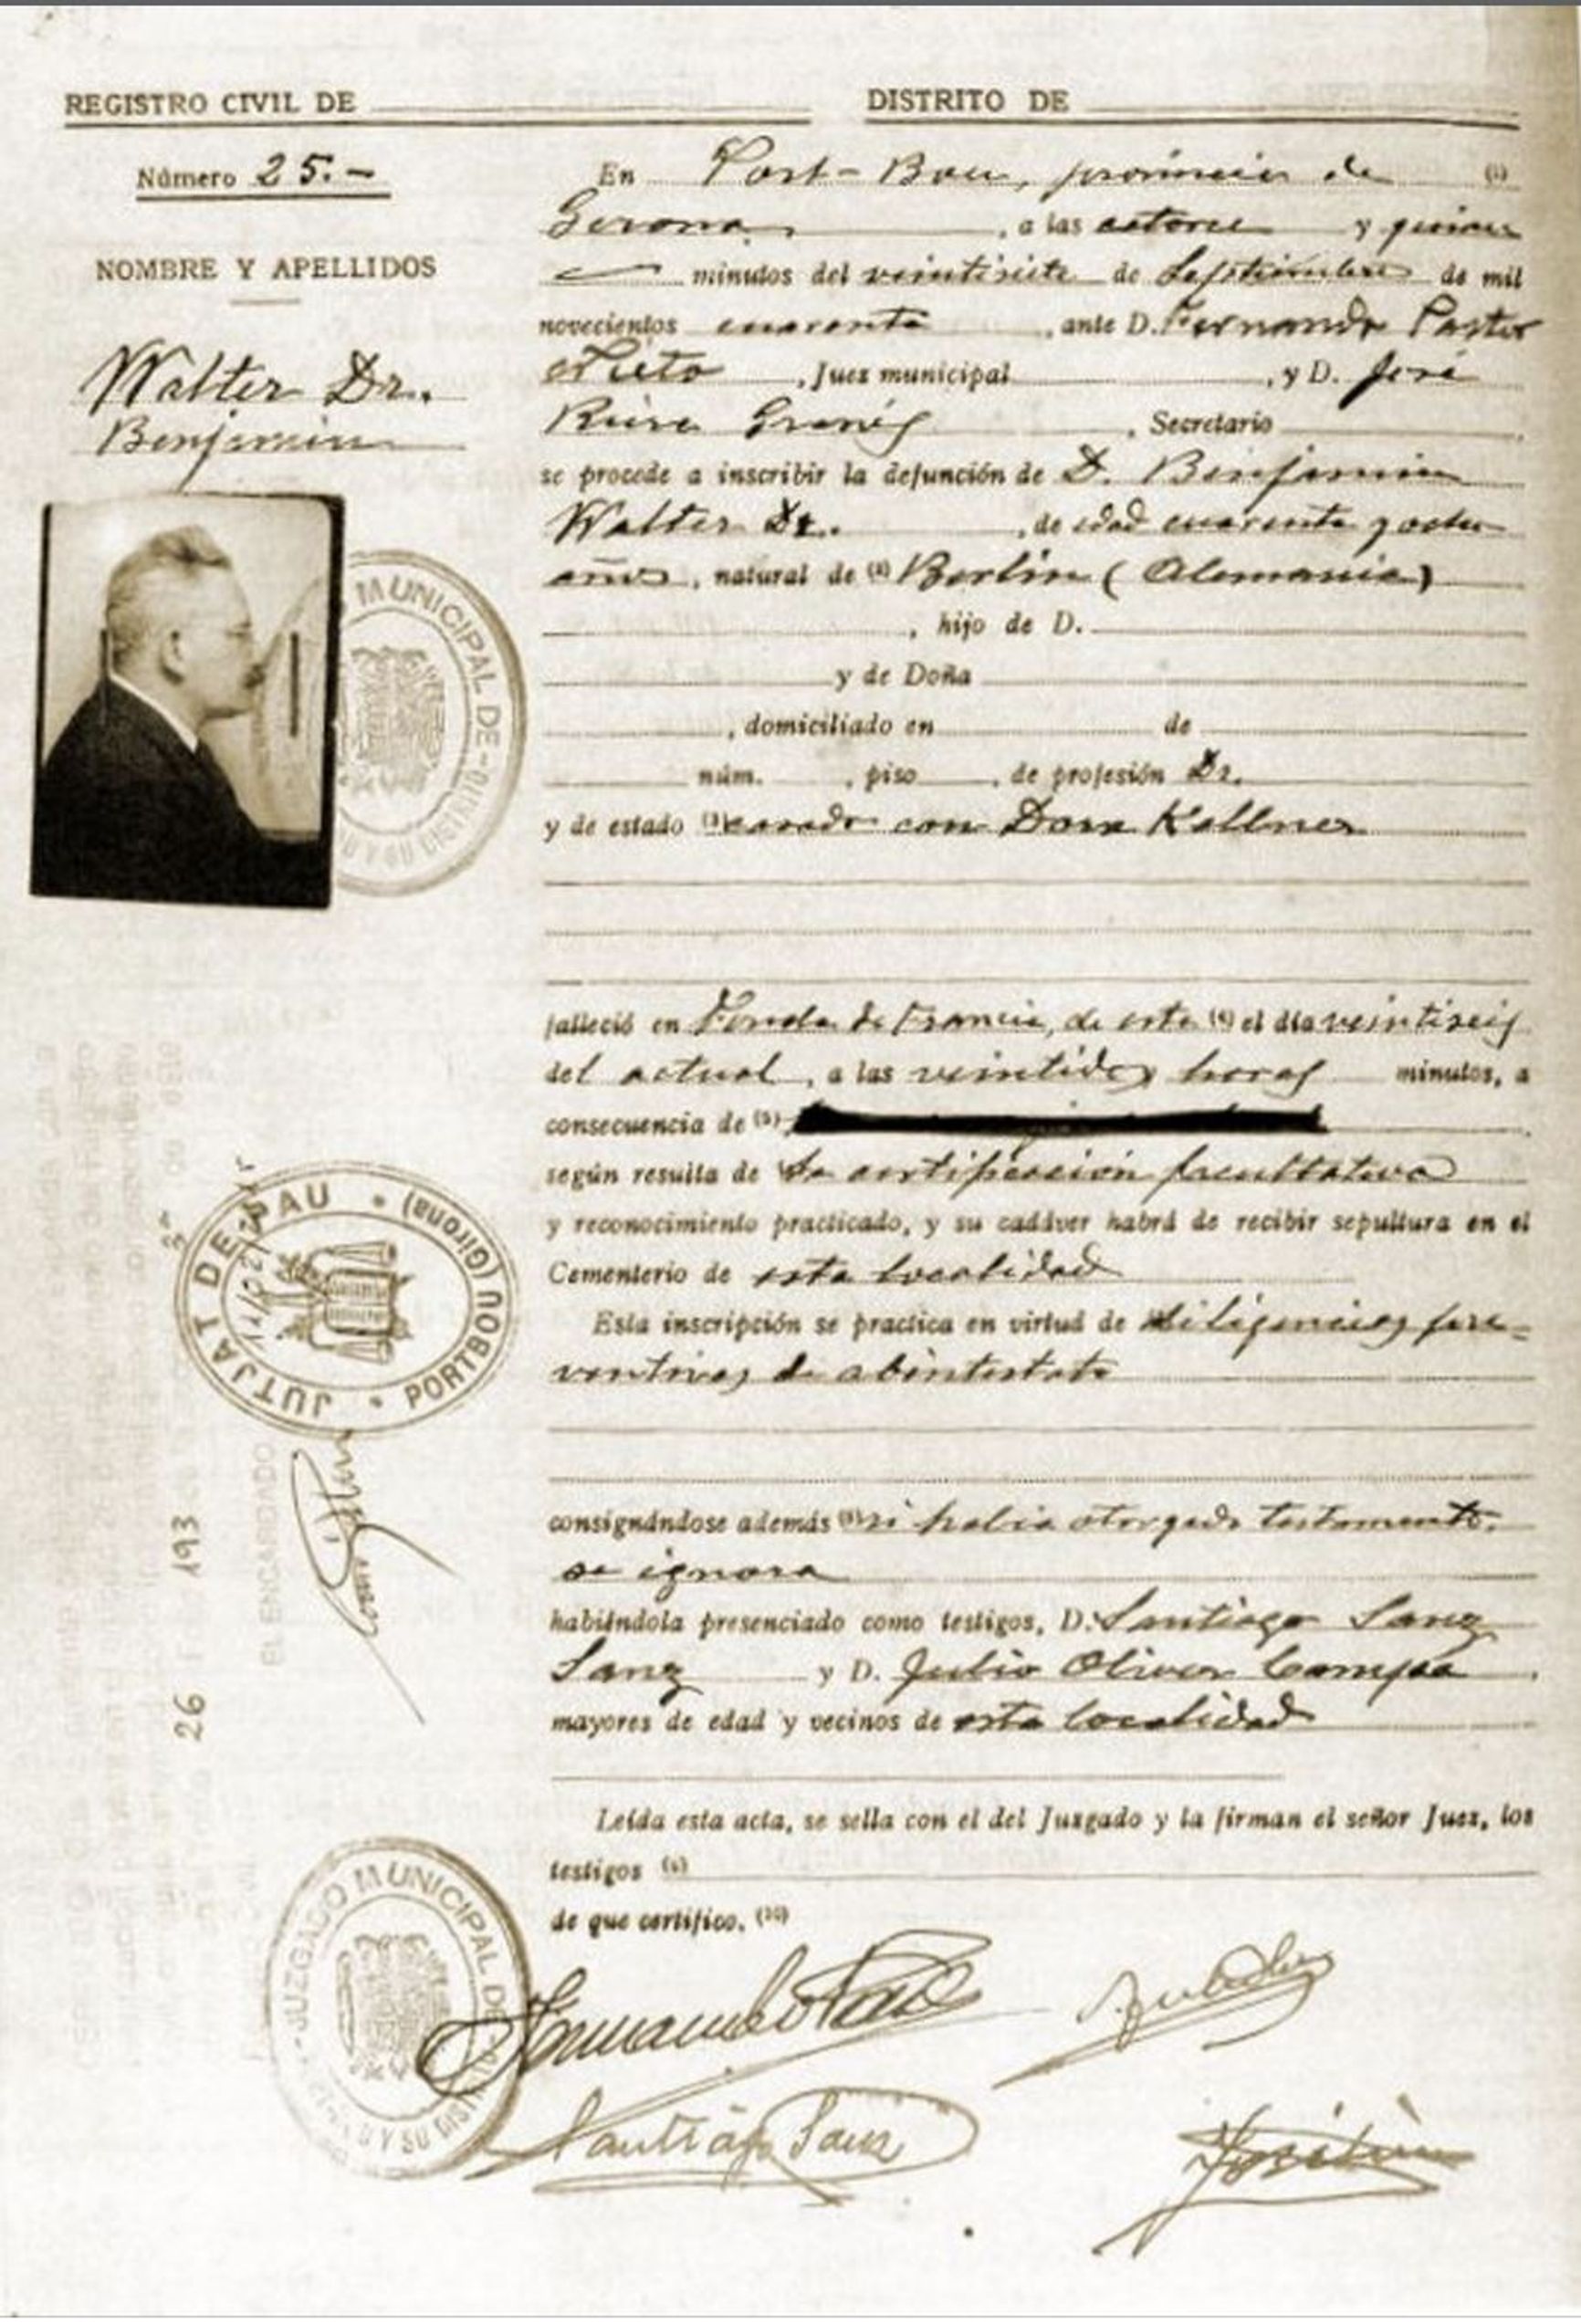 REGISTRO CIVIL DE
DISTRITO DE
Número 25.-
NOMBRE Y APELLIDOS
Walter Dr.
Benjamin
MUNICIPAL DE
U Y SU DISTRITO
En Port-Bou, provincia de (1)
Gerona, a las catorce y quince
minutos del veintisiete de Septiembre de mil
novecientos cuarenta, ante D. Fernando Pastor
Nieto, Juez municipal, y D. José
Riera Granés, Secretario
se procede a inscribir la defunción de D. Benjamin
Walter Dr., de edad cuarenta y ocho
años, natural de (2) Berlin (Alemania)
, hijo de D.
y de Doña
, domiciliado en de
núm. , piso , de profesión Dr.
y de estado (3) casado con Dora Kellner
falleció en Fonda de Francia, de esta (4) el día veintiseis
del actual, a las veintidos horas minutos, a
consecuencia de (5)
según resulta de la certificación facultativa
y reconocimiento practicado, y su cadáver habrá de recibir sepultura en el
Cementerio de esta localidad
Esta inscripción se practica en virtud de diligencias pre-
ventivas de abintestato
JUTJAT DE PAU
PORTBOU (Girona)
EL ENCARGADO
26 193
consignándose además si habia otorgado testamento.
se ignora
habiéndola presenciado como testigos, D. Santiago Sanz
Sanz y D. Julio Oliver Campa
mayores de edad y vecinos de esta localidad
Leída esta acta, se sella con el del Juzgado y la firman el señor Juez, los
testigos
de que certifico. (10)
JUZGADO MUNICIPAL DE
Y SU DIST
Fernando Pastor
Santiago Sanz